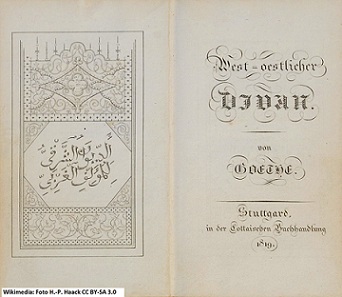 الديوان الشرقي
للمؤلف الغربي
West-oestlicher
DIVAN.
von
GOETHE.
Stuttgard,
in der Cottaischen Buchhandlung
1819.
Wikimedia: Foto H.-P. Haack CC BY-SA 3.0